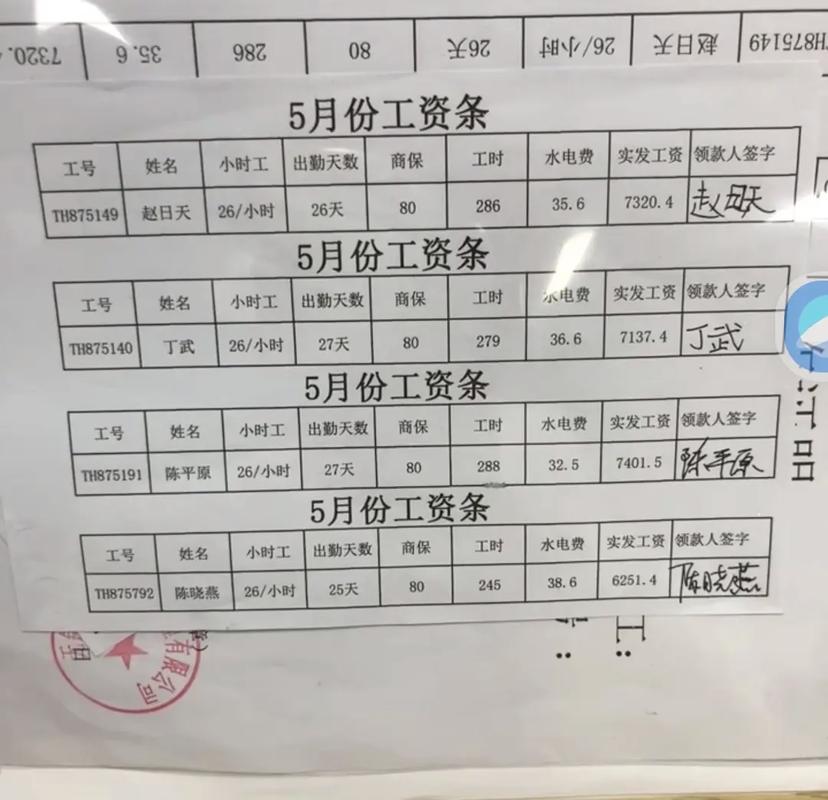 TH875149 赵日天 26/小时 26天 80 286 35.6 7320.
5月份工资条
工号 姓名 小时工 出勤天数 商保 工时 水电费 实发工资 领款人签字
TH875149 赵日天 26/小时 26天 80 286 35.6 7320.4 赵日天
5月份工资条
工号 姓名 小时工 出勤天数 商保 工时 水电费 实发工资 领款人签字
TH875140 丁武 26/小时 27天 80 279 36.6 7137.4 丁武
5月份工资条
工号 姓名 小时工 出勤天数 商保 工时 水电费 实发工资 领款人签字
TH875191 陈平原 26/小时 27天 80 288 32.5 7401.5 陈平原
5月份工资条
工号 姓名 小时工 出勤天数 商保 工时 水电费 实发工资 领款人签字
TH875792 陈晓燕 26/小时 25天 80 245 38.6 6251.4 陈晓燕
有限公司